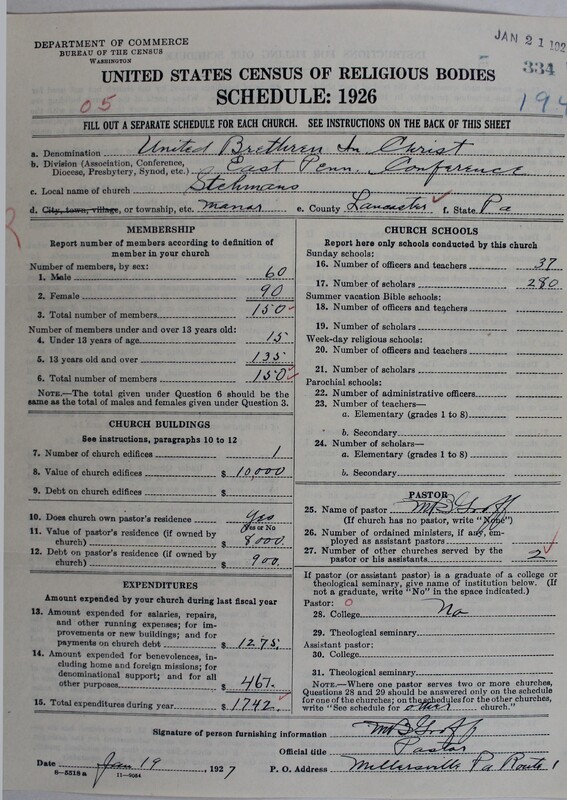 JAN 21 192
DEPARTMENT OF COMMERCE
BUREAU OF THE CENSUS
WASHINGTON
334
UNITED STATES CENSUS OF RELIGIOUS BODIES
SCHEDULE: 1926
05
194
FILL OUT A SEPARATE SCHEDULE FOR EACH CHURCH. SEE INSTRUCTIONS ON THE BACK OF THIS SHEET
a. Denomination United Brethren In Christ
b. Division (Association, Conference, Diocese, Presbytery, Synod, etc.) East Penn. Conference
c. Local name of church Stehmans
d. City, town, village, or township, etc. Manor e. County Lancaster f. State Pa
MEMBERSHIP
Report number of members according to definition of
member in your church
Number of members, by sex:
1. Male 60
2. Female 90
3. Total number of members 150
Number of members under and over 13 years old:
4. Under 13 years of age 15
5. 13 years old and over 135
6. Total number of members 150
NOTE.—The total given under Question 6 should be
same as the total of males and females given under Question 3.
CHURCH BUILDINGS
See instructions, paragraphs 10 to 12
7. Number of church edifices 1
8. Value of church edifices $ 10,000
9. Debt on church edifices $
10. Does church own pastor's residence yes
Yes or No
11. Value of pastor's residence (if owned by
church) $ 8000
12. Debt on pastor's residence (if owned by
church) $ 900.
EXPENDITURES
Amount expended by your church during last fiscal year
13. Amount expended for salaries, repairs,
and other running expenses; for im-
provements or new buildings; and for
payments on church debt $ 1275.
14. Amount expended for benevolences, in-
cluding home and foreign missions; for
denominational support; and for all
other purposes $ 467.
15. Total expenditures during year $ 1742.
CHURCH SCHOOLS
Report here only schools conducted by this church
Sunday schools:
16. Number of officers and teachers 37
17. Number of scholars 280
Summer vacation Bible schools:
18. Number of officers and teachers
19. Number of scholars
Week-day religious schools:
20. Number of officers and teachers
21. Number of scholars
Parochial schools:
22. Number of administrative officers
23. Number of teachers—
a. Elementary (grades 1 to 8)
b. Secondary
24. Number of scholars—
a. Elementary (grades 1 to 8)
b. Secondary
PASTOR
25. Name of pastor M B Groff
(If church has no pastor, write "None")
26. Number of ordained ministers, if any, em-
ployed as assistant pastors
27. Number of other churches served by the
pastor or his assistants 2
If pastor (or assistant pastor) is a graduate of a college or
theological seminary, give name of institution below. (If
not a graduate, write "No" in the space indicated.)
Pastor: 0
28. College No
29. Theological seminary
Assistant pastor:
30. College
31. Theological seminary
NOTE.—Where one pastor serves two or more churches,
Questions 28 and 29 should be answered only on the schedule
for one of the churches; on the schedules for the other churches,
write "See schedule for other church."
Signature of person furnishing information M B Groff
Official title Pastor
Date Jan 19, 1927 P. O. Address Millersville Pa Route 1
8—5518a 11—9084